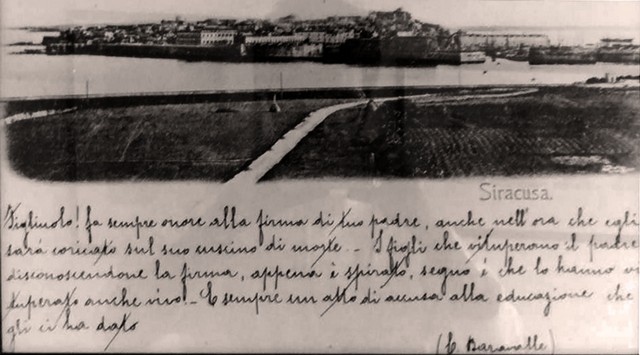 Siracusa.
Figliuolo! fa sempre onore alla firma di tuo padre, anche nell'ora che egli
sarà coricato sul suo cuscino di morte. - I figli che vituperono il padre
disconoscendone la firma, appena è spirato, segno è che lo hanno vi
tuperato anche vivo! - E sempre un atto di accusa alla educazione che
gli ci ha dato
(C. Baravalle)